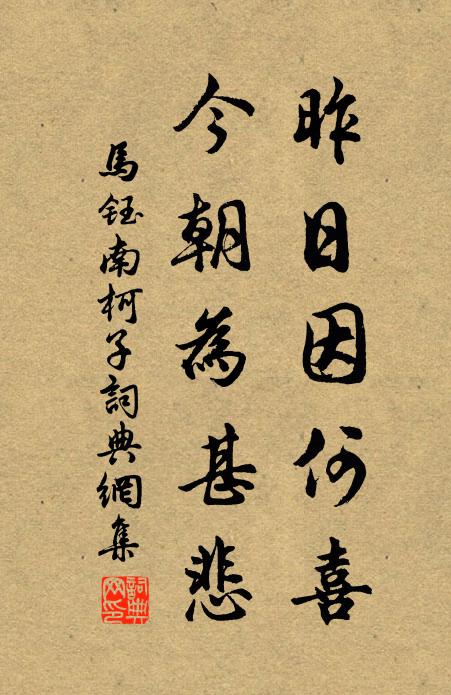 昨日因何喜
今朝為甚悲
馬鈺南柯子詞典網集
詞典網印